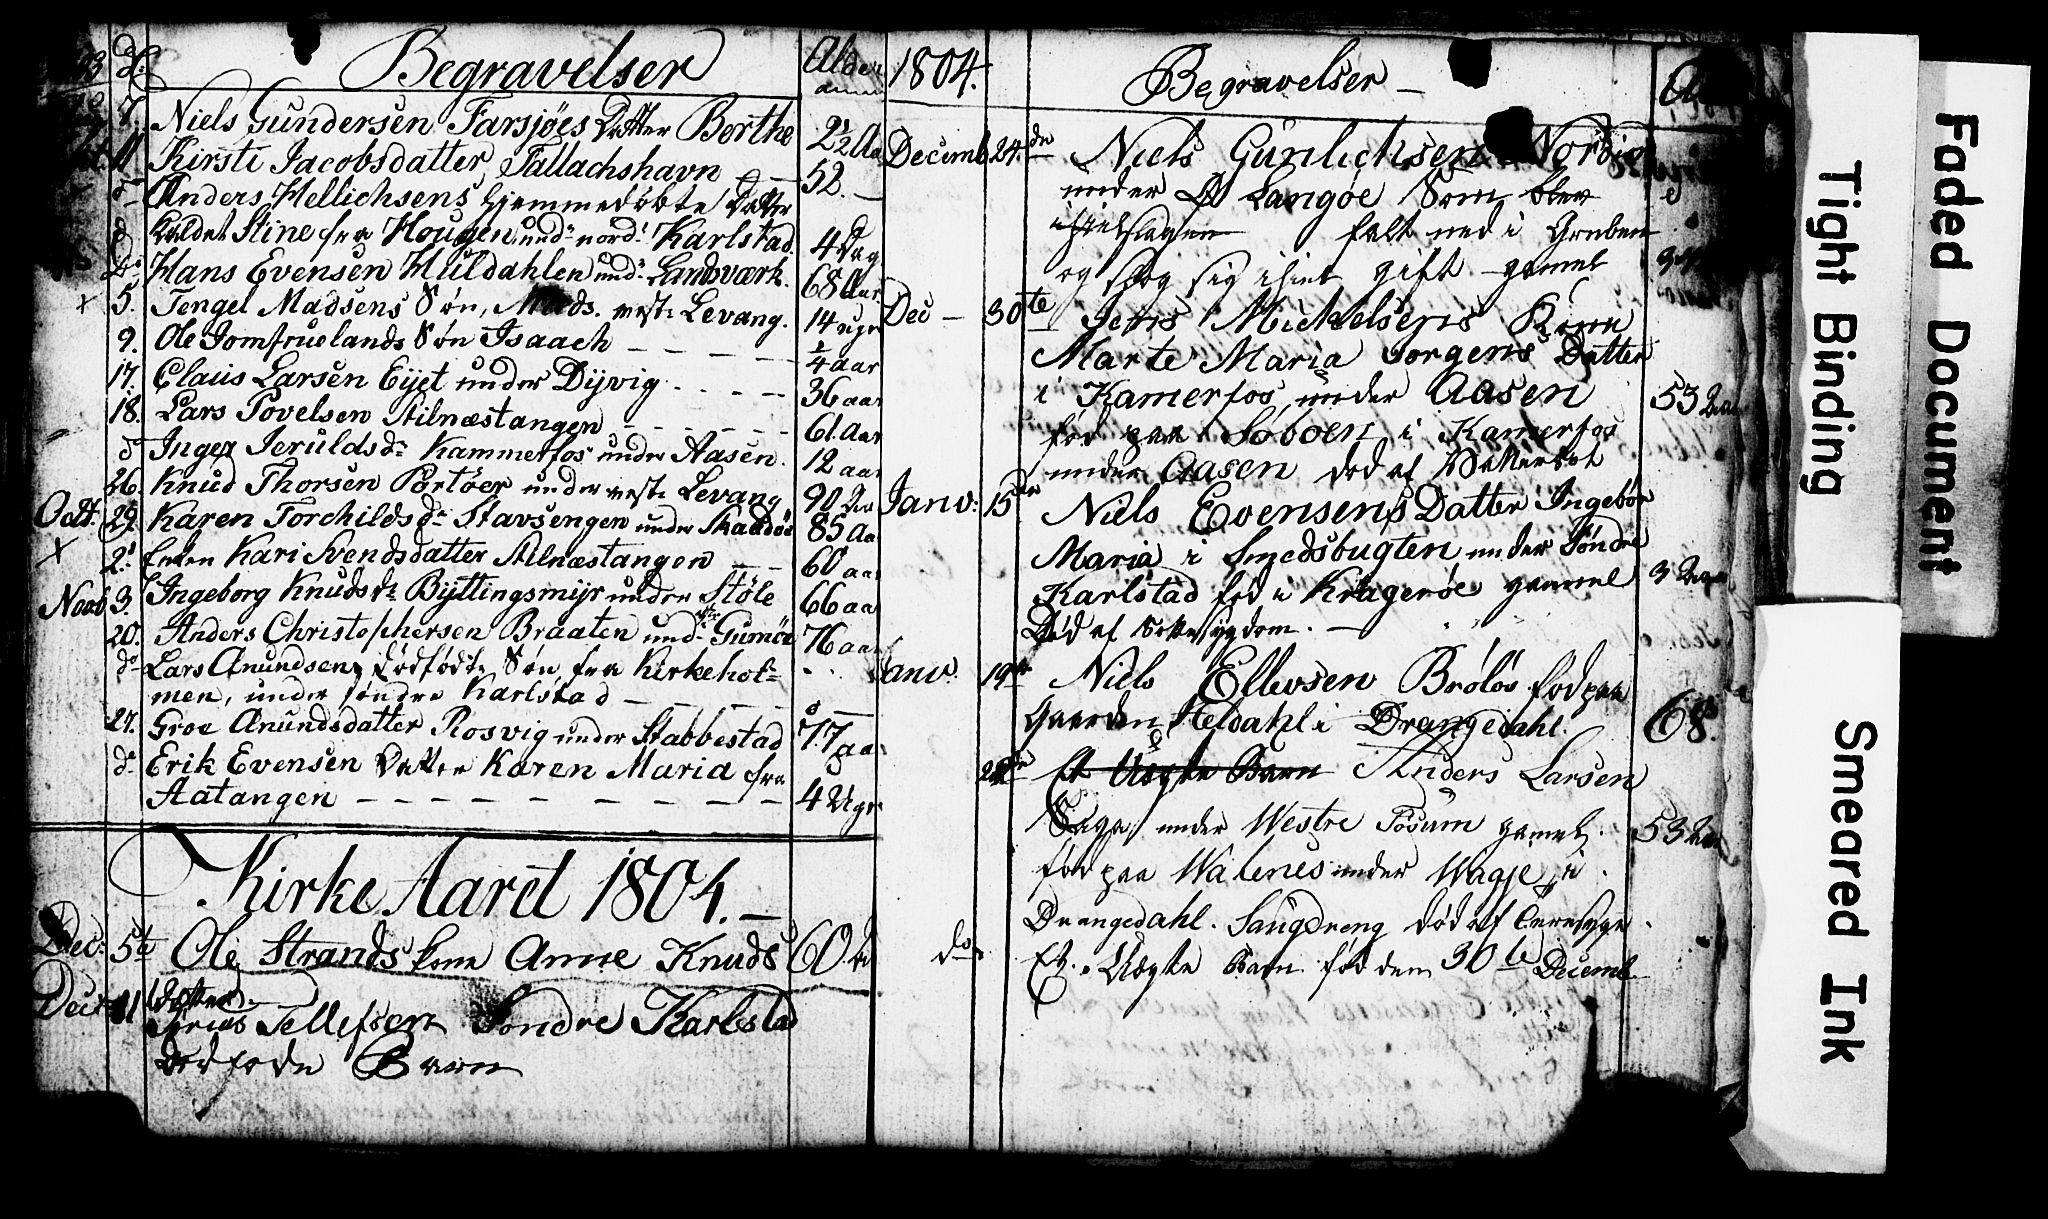 Begravelser
Alder
7. Niels Gundersen Farsjöes Datter Berthe 2½ Aa
11 Kirsti Jacobsdatter, Tallachshavn 52.
Anders Hellichsens hjemmedöbte Datter
kaldet Stine fra Hougen und nord Karlstad 4 Dag
Hans Evensen Huldahlen und Landsværk. 68 Aar
5. Tengel Madsens Sön, Mads. vest Levang. 14 uger
9. Ole Jomfruelands Sön Isaach ¼ aar
17. Claus Larsen Eijet under Dijvig 36 aar
18. Lars Povelsen Stilnæstangen 61. Aar
Inger Jeruldsd. Kammerfos under Aasen. 12 aar
26. Knud Thorsen Portöer under vest Levang 90 Aa
Oct. 29. Karen Torchildsd. Stavsengen under Skaadöe 85 Aa
2. Enken Kari Svendsdatter Stilnæstangen 60 aar
Novb 3. Ingeborg Knudsd. Byttingsmijr under Stöle 66 aa
20. Anders Christophersen Braaten und Gumöe 76 aa
do Lars Anundsens dödfödte Sön fra Kirkehol-
men, under söndre Karlstad
27. Groe Anundsdatter Rosvig under Stabbestad 77 aa
do Erik Evensen Datter Karen Maria fra
Aatangen 4 Uger
Kirke Aaret 1804.
Dec: 5te Ole Strands kone Anne Knuds 60 Aa
datter
Decr 11 Tellefsen Söndre Karlstad
dödföde Barn
1804.
Begravelser
Decemb 24de Niels Gunlichsen Norbiö
under Langöe Som blev
ihielslagen falt ned i Gruben
og slog sig ihiel gift gamel
Dec 30te Jens Mickelsens Kone
Marte Maria Jorgens Datter
i Kamerfos, under Aasen 53 Aar
föd paa Soboen i Kamerfos
under Aasen död af
Janv: 15de Niels Evensens Datter Ingebör
Maria i Smedsbugten under Söndre
Karlstad föd i Krageröe gammel 3 Uger
Död af
Janv. 19de Niels Ellevsen Brölös föd paa
Gaarden Heldahl i Drangedahl. 68.
Et Uægte Barn Anders Larsen
Saga under Westre Fosum gamel. 53 Aar
föd paa Walenes under Wagje i
Drangedahl. Saugdreng död af
do Et Uægte Barn föd dem 30te Decemb
Faded Document
Tight Binding
Smeared Ink